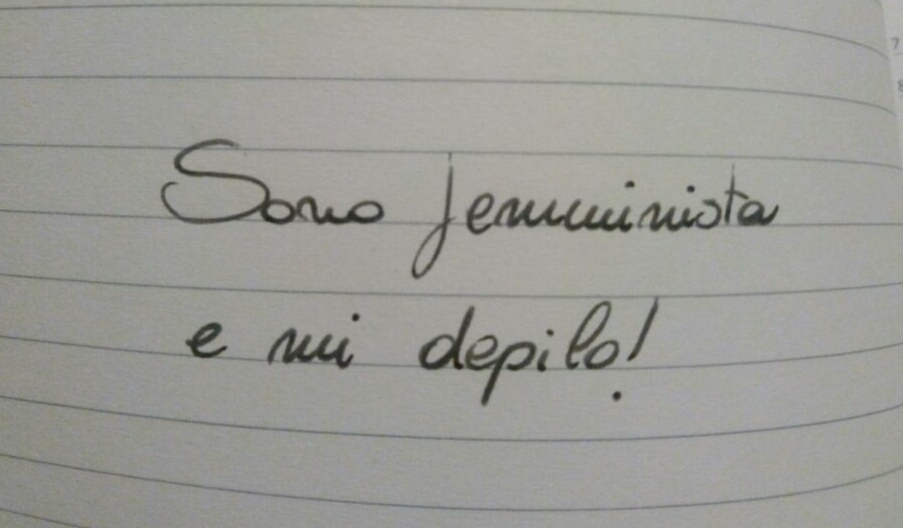 Sono femminista
e mi depilo!
7
8